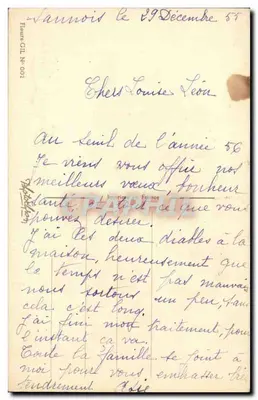 Sannois le 29 Décembre 55
Fleurs GIL No 001
Chers Louise Léon
Au seuil de l'année 56
Je viens vous offrir nos
meilleurs vœux, bonheur
santé et ce que vous
pouvez désirer.
J'ai les deux diables à la
maison, heureusement que
le temps n'est pas mauvais
nous sortons un peu, sans
cela c'est long.
J'ai fini mon traitement, pour
l'instant ça va.
Toute la famille se joint à
moi pour vous embrasser
tendrement